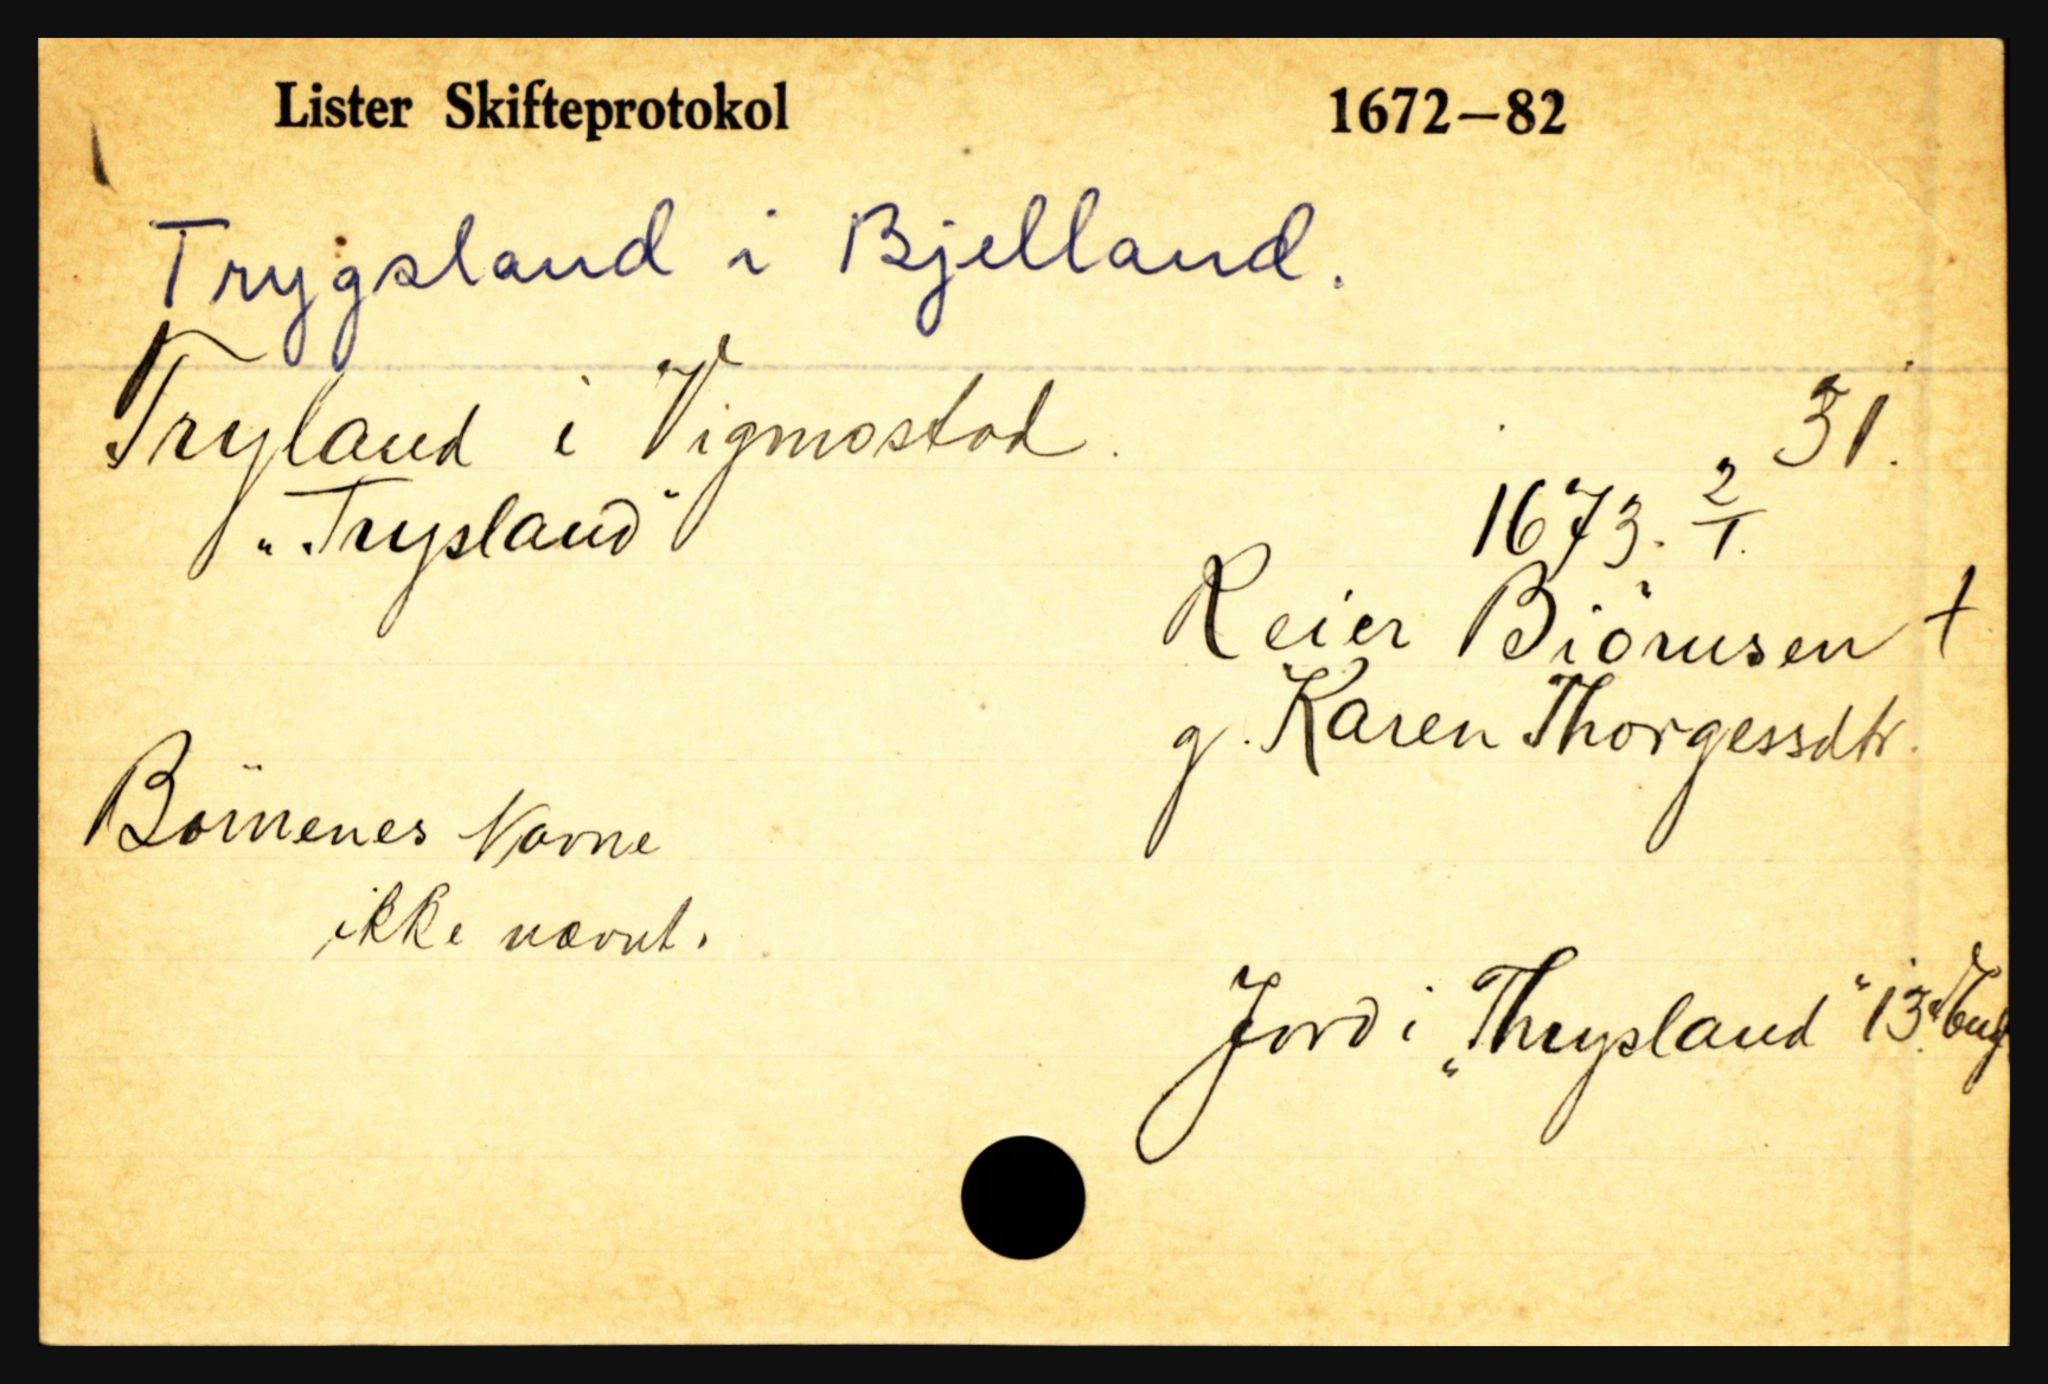 Lister Skifteprotokol 1672–82
Trygsland i Bjelland.
Tryland i Vigmostad. 31.
"Trysland"
1673. 2/1.
Reier Biörnsen †
g. Karen Thorgessdtr.
Börnenes Navne
ikke nævnt.
Jord i "Thrysland" 13